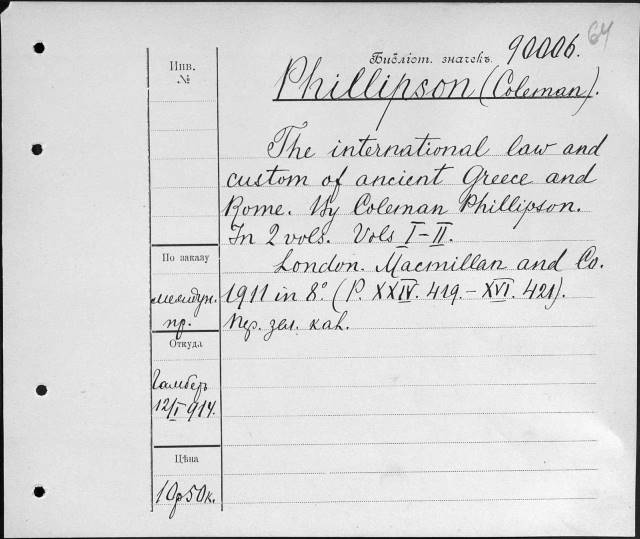 64
Библіот. значекъ. 90006.
Phillipson (Coleman).
Инв.
№
The international law and
custom of ancient Greece and
Rome. By Coleman Phillipson.
In 2 vols. Vols I-II.
London. Macmillan and Co.
1911 in 8°. (P. XXIV. 419.- XVI. 421).
Пер. зел. кал.
По заказу
междун.
пр.
Откуда
Гамберъ
12/I 914.
Цѣна
10р50к.